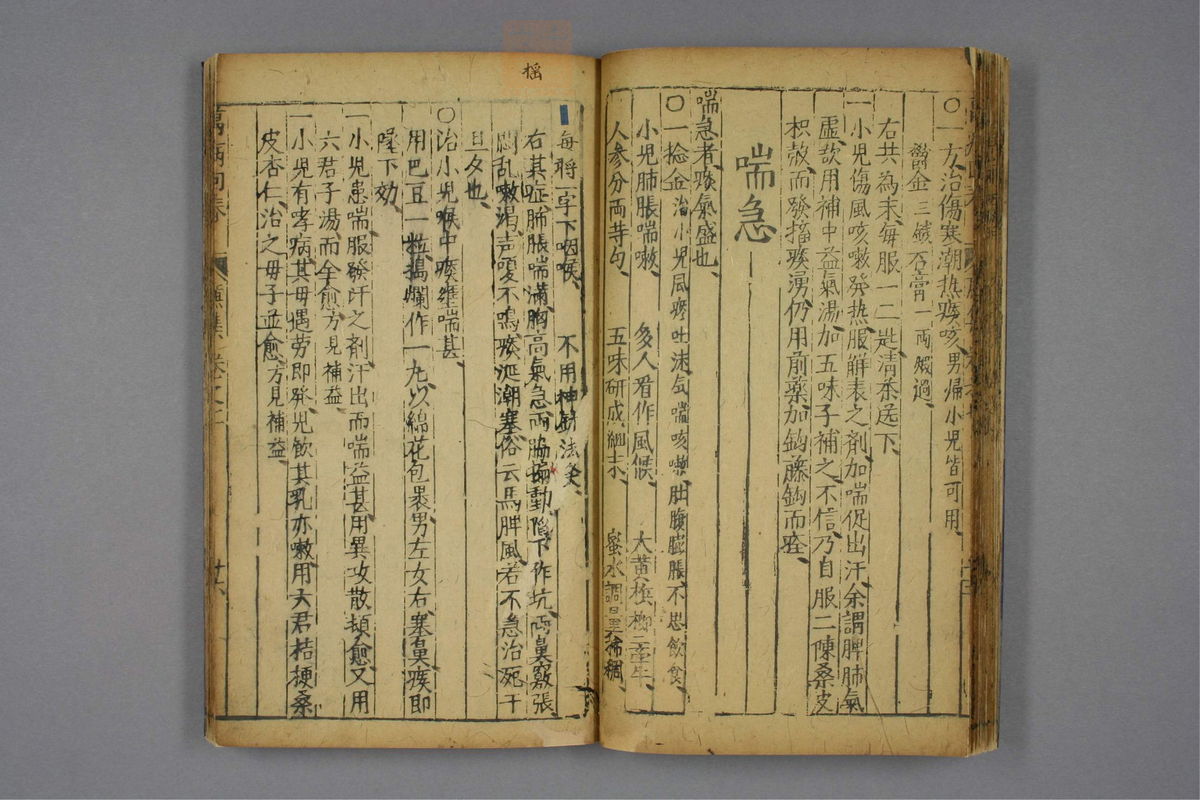 〇一方治傷寒潮热痰咳男帰小児皆可用
欝金三錢 石膏一両煅過
右共為末每服一二匙清茶送下
一小児傷風咳嗽発热服觧表之剤加喘促出汗余謂脾肺氣
虚欲用補中益氣湯加五味子補之不信乃自服二陳桑皮
枳殻而發搐痰湧仍用前藥加鈎藤鈎而痊
喘急
喘急者痰氣盛也
〇一捻金治小児風痰吐沫気喘咳嗽肚腹膨脹不思飲食
小児肺脹喘嗽 多人看作風候 大黄梹榔二牽牛
人参分両等勻 五味研成細末 蜜水調量稀稠
每將一字下咽喉 不用神針法灸
右其症肺脹喘滿胸高氣急両脇搧動陷下作坑両鼻竅張
悶乱嗽渴声嗄不鳴痰涎潮塞俗云馬脾風若不急治死于
旦夕也
〇治小児喉中痰壅喘甚
用巴豆一粒搗爛作一丸以綿花包裹男左女右塞鼻痰即
墜下効
一小児患喘服發汗之剤汗出而喘益甚用異攻散頓愈又用
六君子湯而全愈方見補益
一小児有孝病其母遇劳即発児飲其乳亦嗽用六君桔梗桑
皮杏仁治之毋子並愈方見補益
萬病回春
卷之七
摇